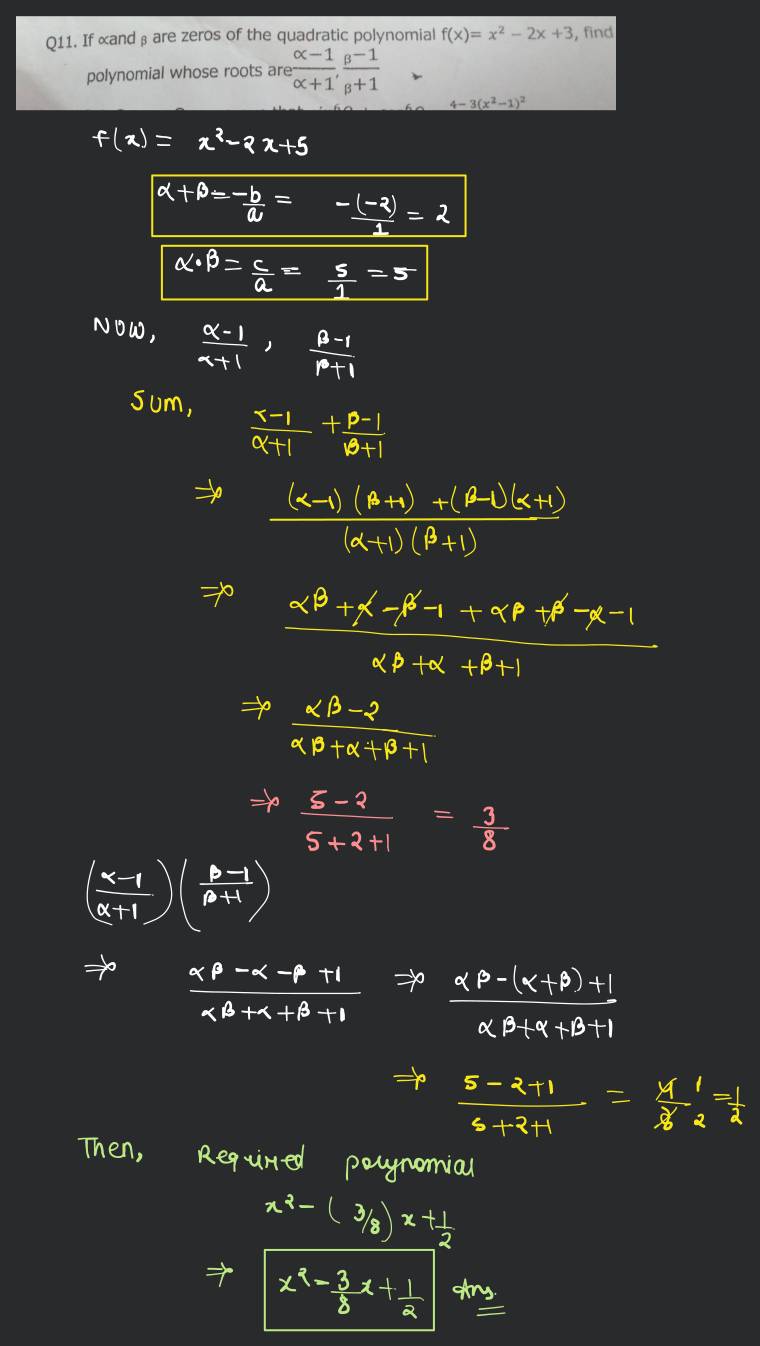 Q11. If ∝and β are zeros of the quadratic polynomial f(x)= x² – 2x +3, find
polynomial whose roots are (∝−1)/(∝+1), (β−1)/(β+1)
4−3(x²−1)²
f(x) = x²-2x+5
α+β = -b/a = -(-2)/1 = 2
α•β = c/a = 5/1 = 5
NOW, (α-1)/(α+1) , (β-1)/(β+1)
Sum, (α-1)/(α+1) + (β-1)/(β+1)
⇒ ((α-1)(β+1) + (β-1)(α+1))/((α+1)(β+1))
⇒ (αβ+α-β-1 + αβ+β-α-1)/(αβ+α+β+1)
⇒ (αβ-2)/(αβ+α+β+1)
⇒ (5-2)/(5+2+1) = 3/8
((α-1)/(α+1)) ((β-1)/(β+1))
⇒ (αβ-α-β+1)/(αβ+α+β+1) ⇒ (αβ-(α+β)+1)/(αβ+α+β+1)
⇒ (5-2+1)/(5+2+1) = 4/8 1/2 = 1/2
Then, Required polynomial
x²-(3/8)x+1/2
⇒ x²-3/8x+1/2 Ans.